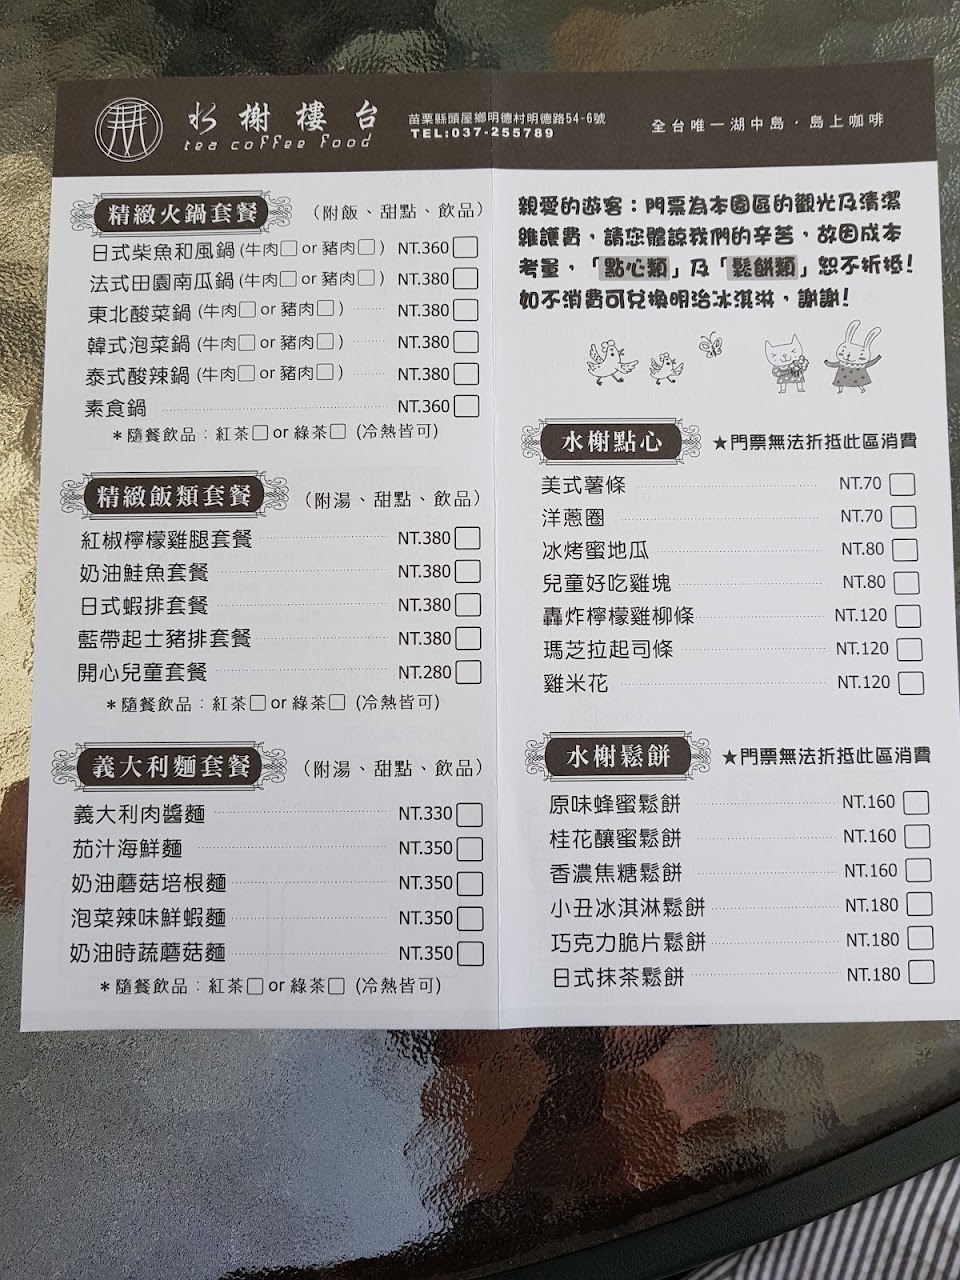 水榭樓台
tea coffee food
苗栗縣頭屋鄉明德村明德路54-6號
TEL:037-255789
全台唯一湖中島．島上咖啡
精緻火鍋套餐 （附飯、甜點、飲品）
日式柴魚和風鍋 (牛肉□ or 豬肉□) NT.360 □
法式田園南瓜鍋 (牛肉□ or 豬肉□) NT.380 □
東北酸菜鍋 (牛肉□ or 豬肉□) NT.380 □
韓式泡菜鍋 (牛肉□ or 豬肉□) NT.380 □
泰式酸辣鍋 (牛肉□ or 豬肉□) NT.380 □
素食鍋 NT.360 □
＊隨餐飲品：紅茶□ or 綠茶□ (冷熱皆可)
精緻飯類套餐 （附湯、甜點、飲品）
紅椒檸檬雞腿套餐 NT.380 □
奶油鮭魚套餐 NT.380 □
日式蝦排套餐 NT.380 □
藍帶起士豬排套餐 NT.380 □
開心兒童套餐 NT.280 □
＊隨餐飲品：紅茶□ or 綠茶□ (冷熱皆可)
義大利麵套餐 （附湯、甜點、飲品）
義大利肉醬麵 NT.330 □
茄汁海鮮麵 NT.350 □
奶油蘑菇培根麵 NT.350 □
泡菜辣味鮮蝦麵 NT.350 □
奶油時蔬蘑菇麵 NT.350 □
＊隨餐飲品：紅茶□ or 綠茶□ (冷熱皆可)
親愛的遊客：門票為本園區的觀光及清潔
維護費，請您體諒我們的辛苦，故因成本
考量，「點心類」及「鬆餅類」恕不折抵！
如不消費可兌換明治冰淇淋，謝謝！
水榭點心 ★門票無法折抵此區消費
美式薯條 NT.70 □
洋蔥圈 NT.70 □
冰烤蜜地瓜 NT.80 □
兒童好吃雞塊 NT.80 □
轟炸檸檬雞柳條 NT.120 □
瑪芝拉起司條 NT.120 □
雞米花 NT.120 □
水榭鬆餅 ★門票無法折抵此區消費
原味蜂蜜鬆餅 NT.160 □
桂花釀蜜鬆餅 NT.160 □
香濃焦糖鬆餅 NT.160 □
小丑冰淇淋鬆餅 NT.180 □
巧克力脆片鬆餅 NT.180 □
日式抹茶鬆餅 NT.180 □